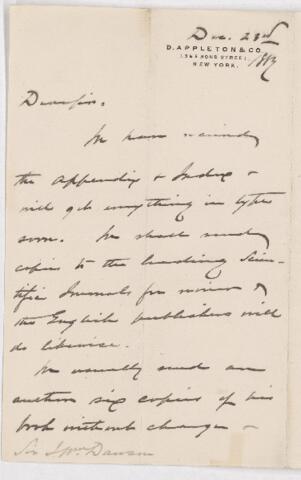 Dec. 23rd
D. APPLETON & CO.
1, 3 & 5 BOND STREET,
NEW YORK.
1887
Dear Sir,
We have received
the Appendix & Index &
will get everything in type
soon. We shall send
copies to the leading Scien-
tific Journals for review &
the English publishers will
do likewise.
We usually send an
author six copies of his
book without charge &
Sir J Wm Dawson